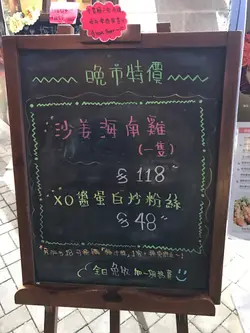 晚市特價
沙姜海南雞
(一隻)
$118
XO醬蛋白炒粉絲
$48
全日免收加一服務費